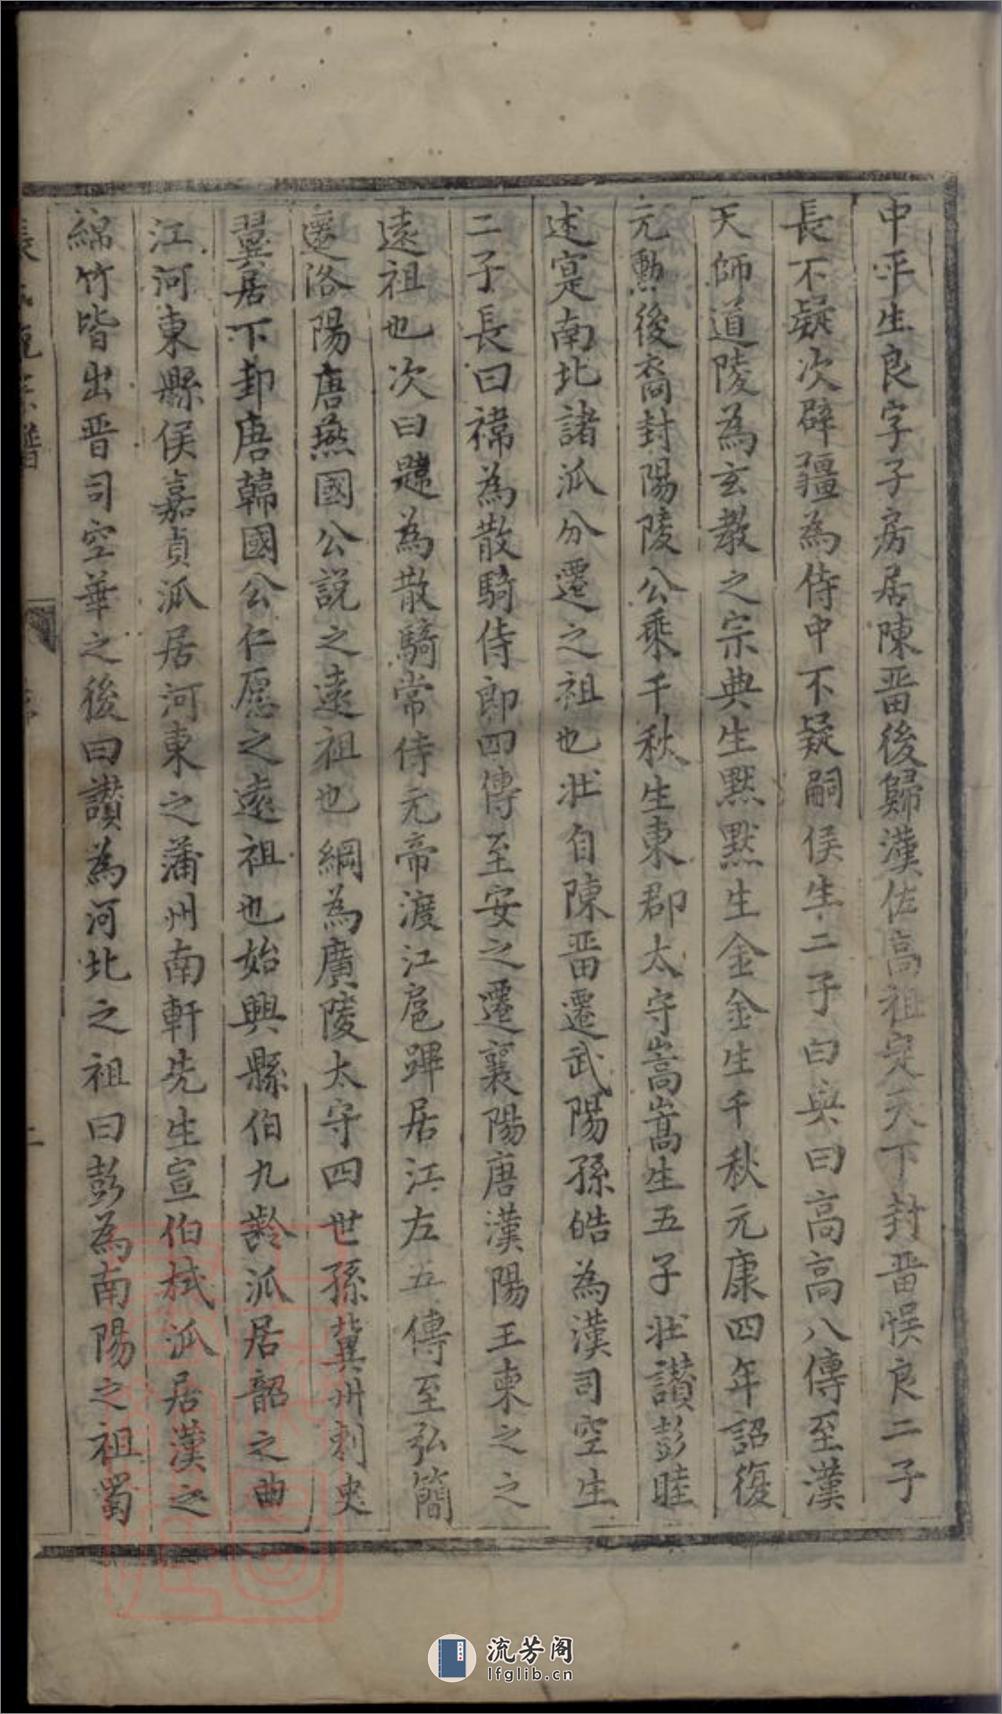 中平生良字子房居陳晋後歸漢佐高祖定天下封晋悮良二子
長不疑次辟疆為侍中不疑嗣侯生二子曰典曰高高八傳至漢
天師道陵為玄教之宗典生黙黙生金金生千秋元康四年詔復
元勲後裔封陽陵公乘千秋生東郡太守嵩嵩生五子壯讃彭睦
述寔南北諸派分遷之祖也壯自陳晋遷武陽孫皓為漢司空生
二子長曰禕為散騎侍郎四傳至安之遷襄陽唐漢陽王柬之之
遠祖也次曰韙為散騎常侍元帝渡江扈蹕居江左五傳至弘簡
遷洛陽唐燕國公説之遠祖也綱為廣陵太守四世孫冀州刺史
翼居下邽唐韓國公仁愿之遠祖也始興縣伯九齡派居韶之曲
江河東縣侯嘉貞派居河東之蒲州南軒先生宣伯栻派居漢之
綿竹皆出晋司空華之後曰讃為河北之祖曰彭為南陽之祖蜀
流芳阁
lfglib.cn